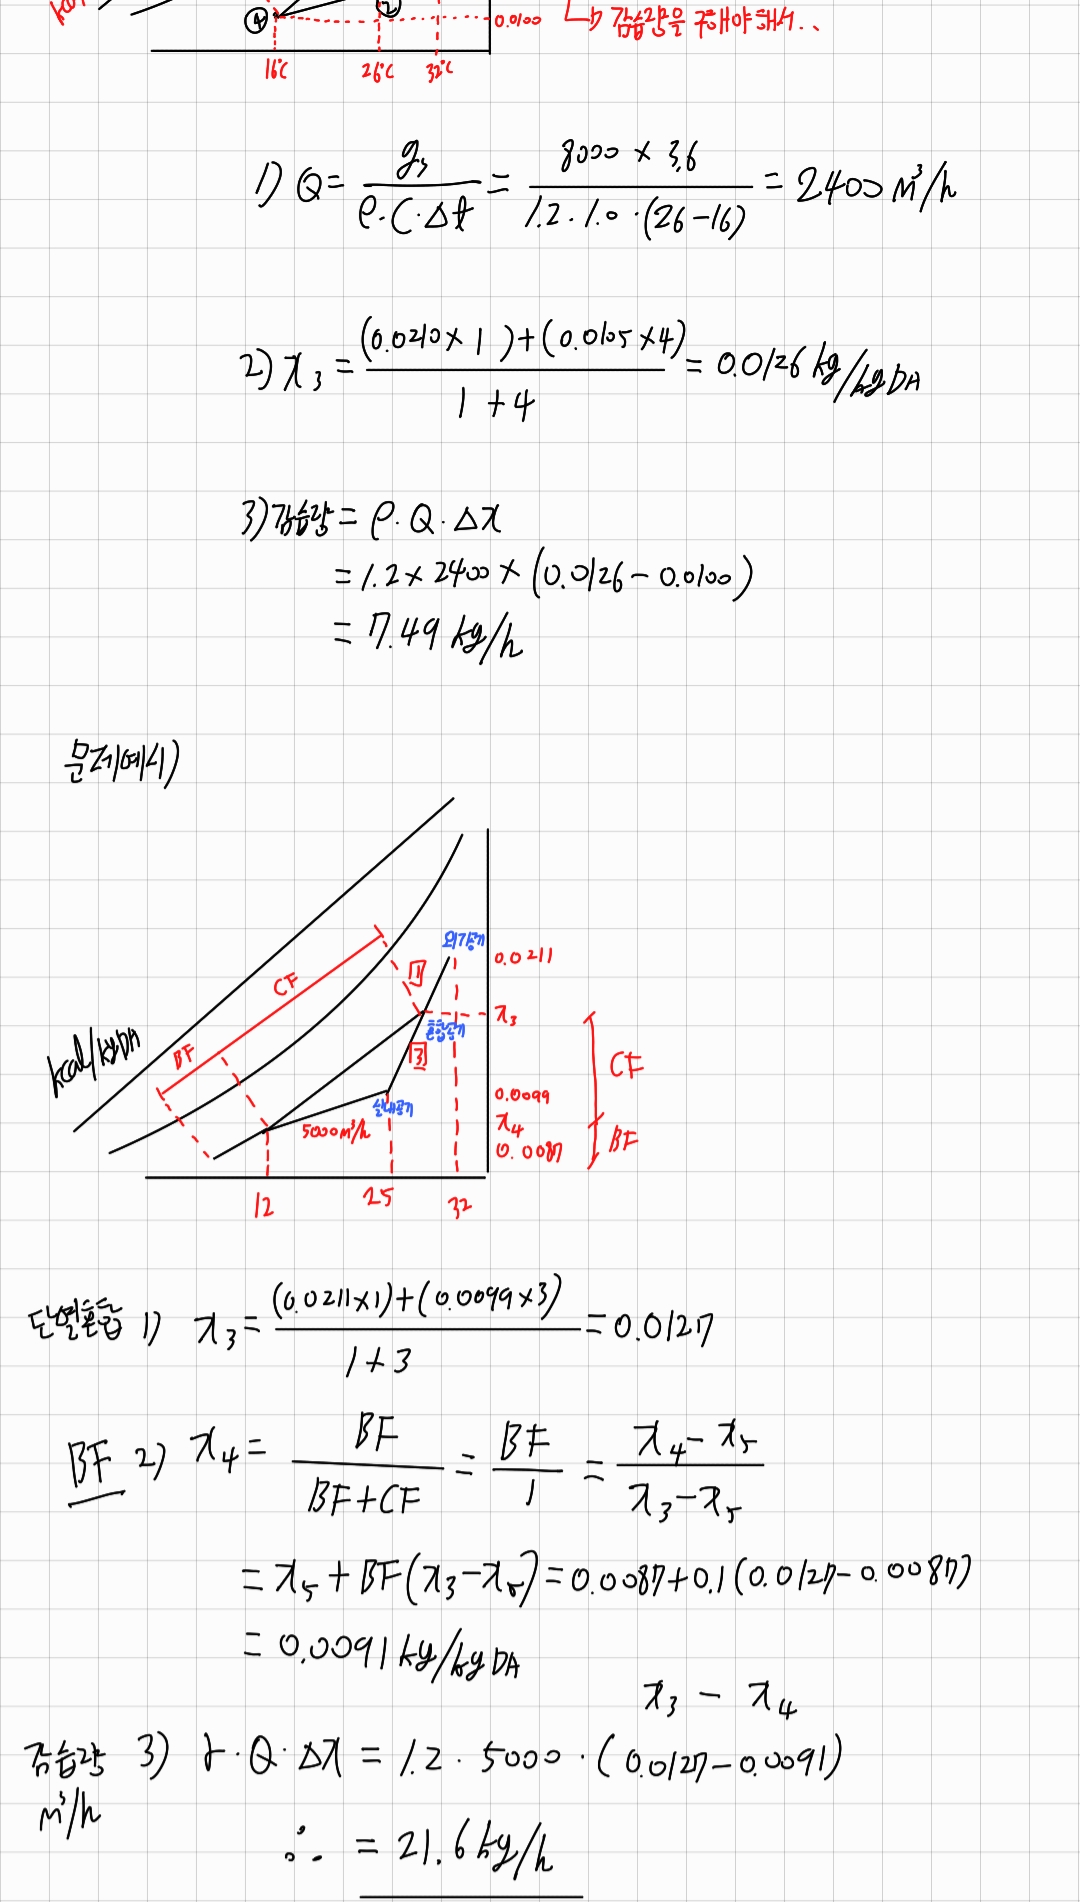 ④ ② 0.0100 → 감습량을 구해야 해서..
16℃ 26℃ 32℃
1) Q = g_s / ρ·C·Δt = 8000 × 3.6 / 1.2·1.0·(26-16) = 2400 m³/h
2) x₃ = (0.0210×1)+(0.0105×4) / 1+4 = 0.0126 kg/kgDA
3) 감습량 = ρ·Q·Δx
= 1.2 × 2400 × (0.0126 - 0.0100)
= 7.49 kg/h
문제예시)
외기공기
0.0211
CF
1
x₃
혼합공기
kcal/kgDA
BF
3
CF
0.0099
실내공기
x₄
5000m³/h
BF
0.0087
12 25 32
단열혼합 1) x₃ = (0.0211×1)+(0.0099×3) / 1+3 = 0.0127
BF 2) x₄ = BF / BF+CF = BF / 1 = x₄-x₅ / x₃-x₅
= x₅ + BF(x₃-x₅) = 0.0087+0.1(0.0127-0.0087)
= 0.0091 kg/kgDA
x₃ - x₄
감습량 3) r·Q·Δx = 1.2·5000·(0.0127-0.0091)
m³/h
∴ = 21.6 kg/h